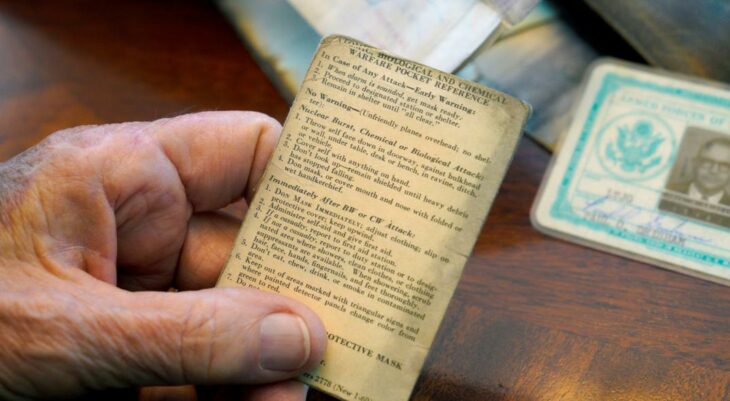 BIOLOGICAL AND CHEMICAL
WARFARE POCKET REFERENCE
In Case of Any Attack—Early Warning:
1. When alarm is sounded, get mask ready.
2. Proceed to designated station or shelter.
3. Remain in shelter until "all clear."
No Warning—(Unfriendly planes overhead; no shel-
ter):
Nuclear Burst, Chemical or Biological Attack:
1. Throw self face down in doorway, against bulkhead
or wall, under table, desk or bench, in ravine, ditch,
or vehicle.
2. Cover self with anything on hand.
3. Don't look up—remain shielded until heavy debris
has stopped falling.
4. Don mask, or cover mouth and nose with folded or
wet handkerchief.
Immediately After BW or CW Attack:
1. DON MASK IMMEDIATELY; adjust clothing; slip on
protective cover; keep upwind.
2. Administer self-aid and give first aid.
3. If a casualty, report to first aid station.
4. If not a casualty, duty station or to desig-
nated area where showers, clean clothing, or clothing
suppressants are available. When showering, scrub
hair, face, hands, fingernails, and feet thoroughly.
5. Don't eat, chew, drink, or smoke in contaminated
area.
6. Keep out of areas marked with triangular signs and
where painted detector panels change color from
green to red.
7. Do not
PROTECTIVE MASK
2778 (New 1-60)
ARMED FORCES OF